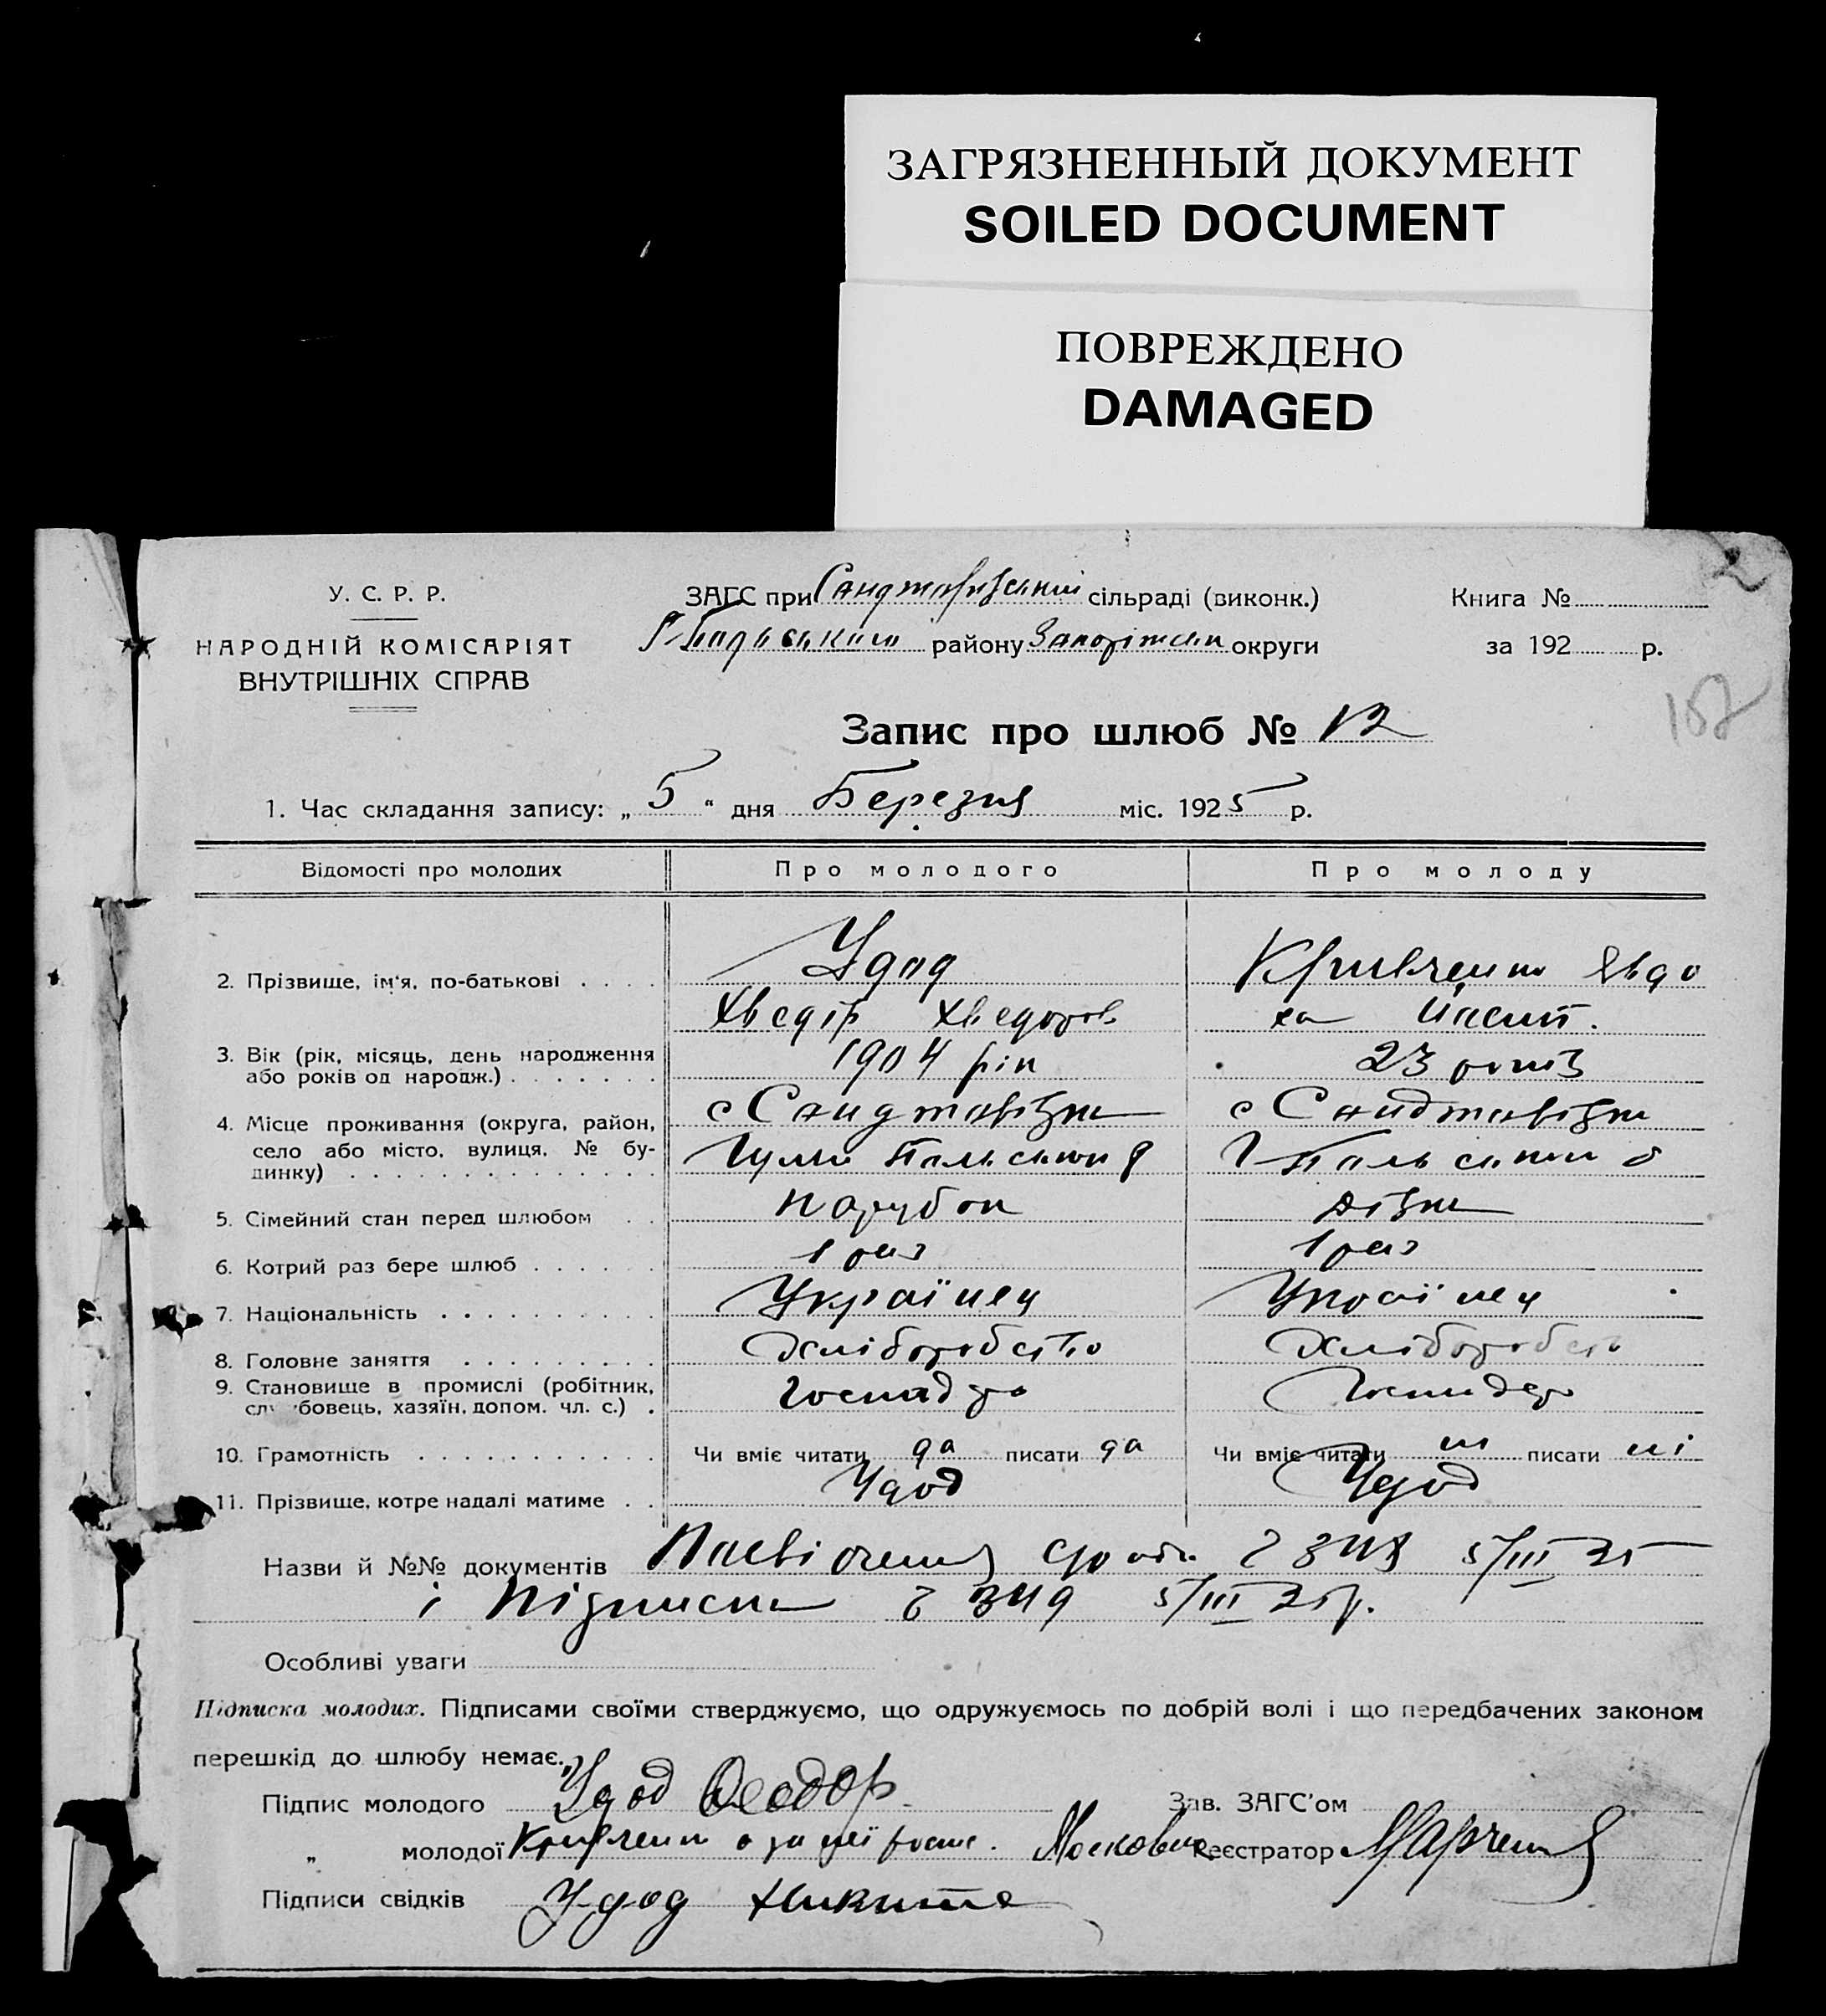 ЗАГРЯЗНЕННЫЙ ДОКУМЕНТ
SOILED DOCUMENT
ПОВРЕЖДЕНО
DAMAGED
2
У. С. Р. Р.
НАРОДНІЙ КОМІСАРІЯТ
ВНУТРІШНІХ СПРАВ
ЗАГС при сільраді (виконк.)
району округи
Книга №
за 192 р.
Запис про шлюб № 12
1. Час складання запису: „ 5 “ дня Березня міс. 1925 р.
Відомості про молодих Про молодого Про молоду
2. Прізвище, ім'я, по-батькові Удод Кривченко Явдо
Хведір Хведоров ха
3. Вік (рік, місяць, день народження 1904 рік 23 років
або років од народж.)
4. Місце проживання (округа, район, с с
село або місто, вулиця, № бу- Гуляй Польський
динку)
5. Сімейний стан перед шлюбом парубок дівка
6. Котрий раз бере шлюб 1 раз 1 раз
7. Національність Українец Українец
8. Головне заняття Хліборобство Хліборобство
9. Становище в промислі (робітник, Господар Господар
службовець, хазяїн, допом. чл. с.)
10. Грамотність Чи вміє читати да писати да Чи вміє читати ні писати ні
11. Прізвище, котре надалі матиме Удод Удод
Назви й №№ документів 5/III 25
і Підписка 349 5/III 25 р.
Особливі уваги
Підписка молодих. Підписами своїми стверджуємо, що одружуємось по добрій волі і що передбачених законом
перешкід до шлюбу немає.
Підпис молодого Удод Феодор Зав. ЗАГС'ом
„ молодої Кривченко а за неї Реєстратор
Підписи свідків Удод Никита